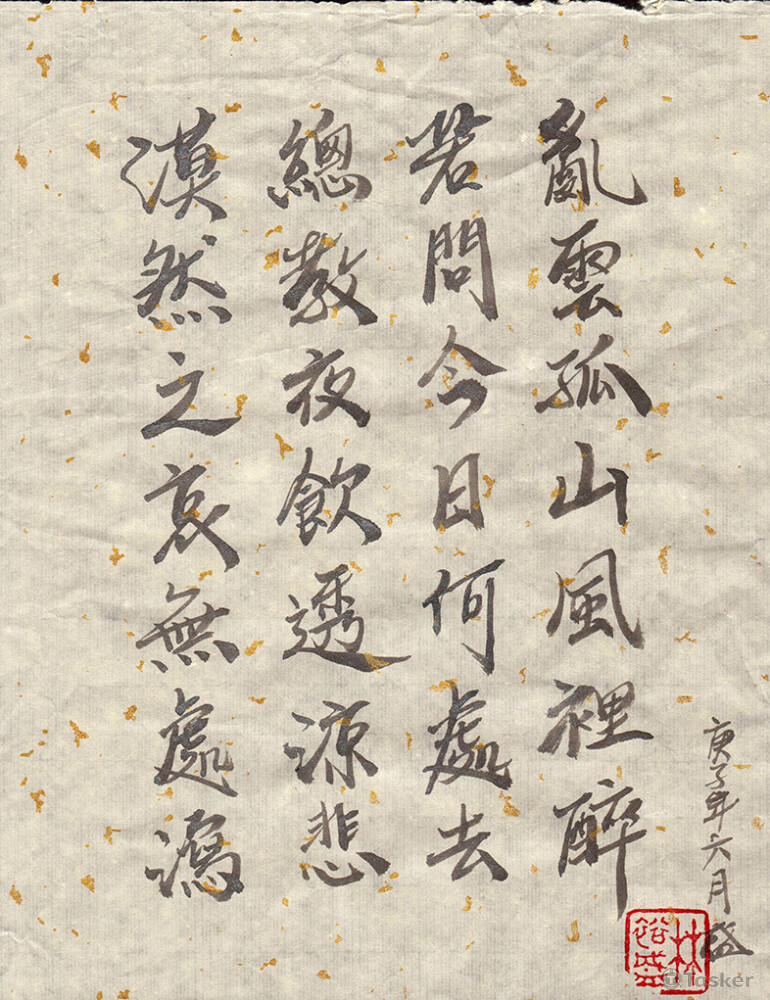 亂雲孤山風裡醉
若問今日何處去
總教夜飲透涼悲
漠然之哀無處瀉
庚子年六月盛
林裕盛
@Tasker